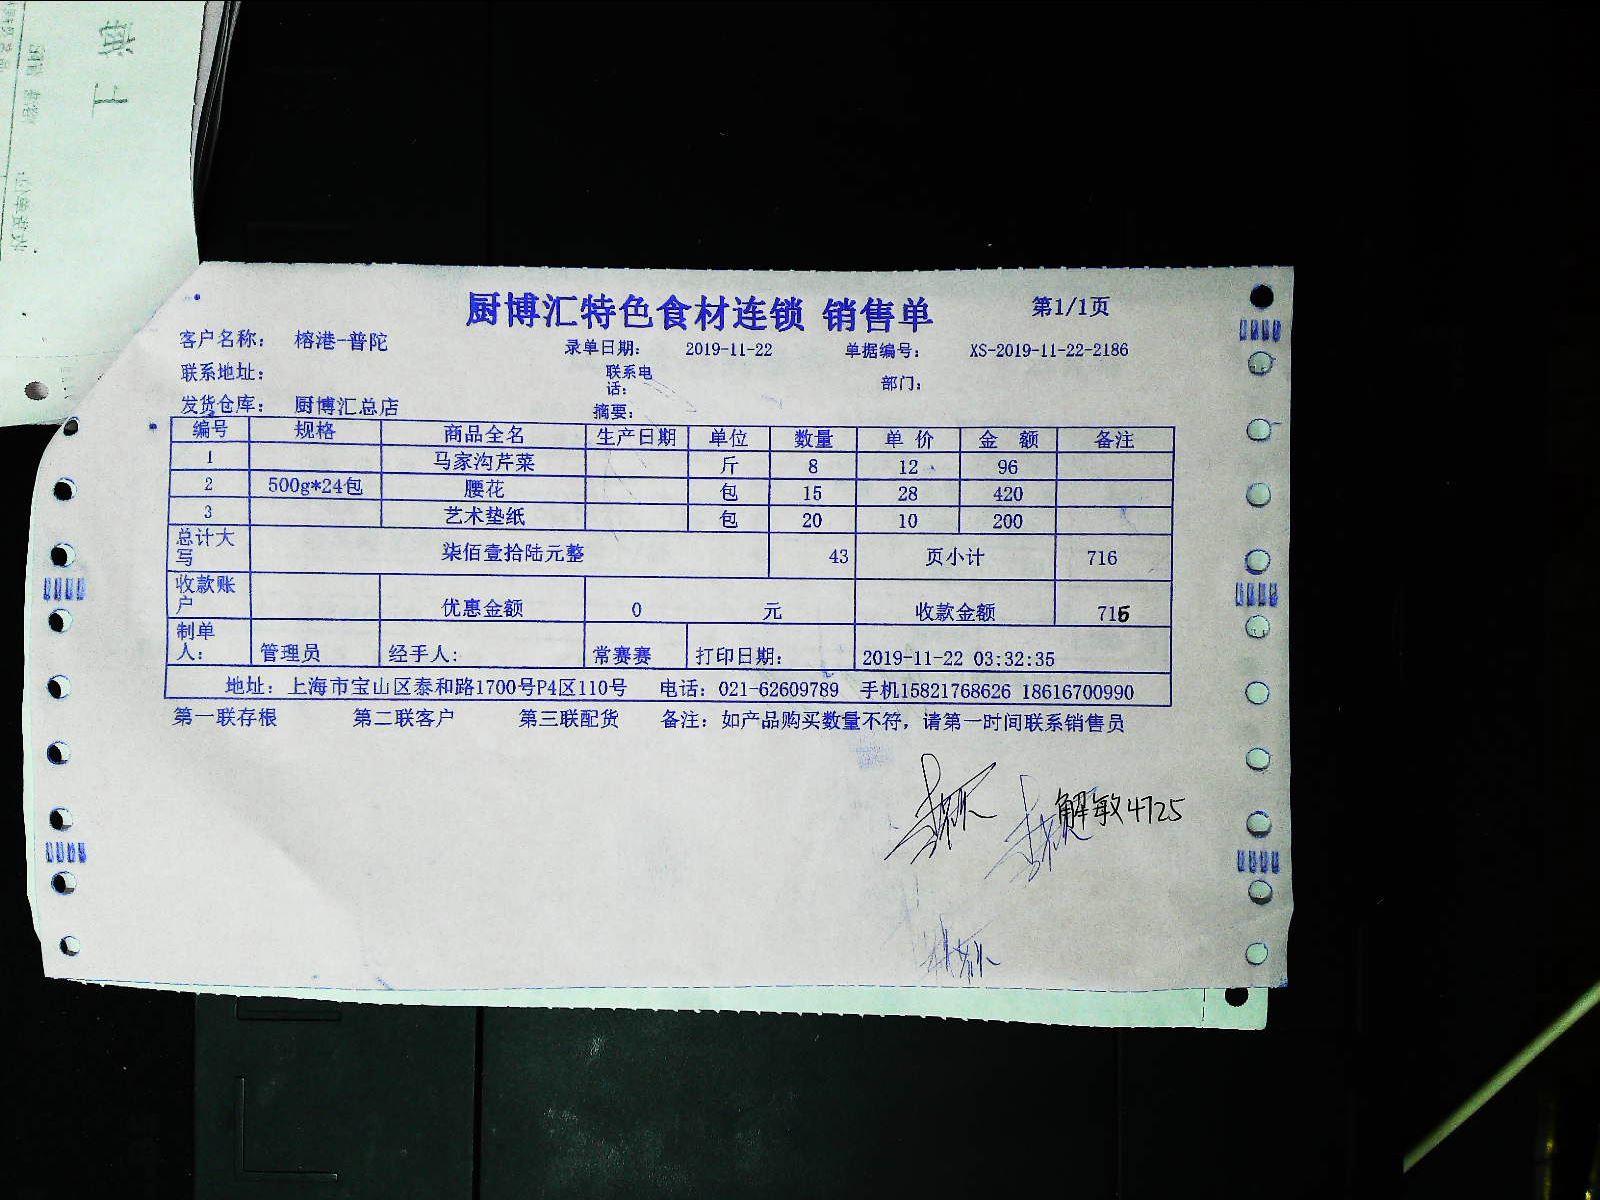 上海
厨博汇特色食材连锁 销售单 第1/1页
客户名称: 榕港-普陀 录单日期: 2019-11-22 单据编号: XS-2019-11-22-2186
联系地址: 联系电话: 部门:
发货仓库: 厨博汇总店 摘要:
编号 规格 商品全名 生产日期 单位 数量 单价 金额 备注
1 马家沟芹菜 斤 8 12 96
2 500g*24包 腰花 包 15 28 420
3 艺术垫纸 包 20 10 200
总计大写 柒佰壹拾陆元整 43 页小计 716
收款账户 优惠金额 0 元 收款金额 715
制单人: 管理员 经手人: 常赛赛 打印日期: 2019-11-22 03:32:35
地址: 上海市宝山区泰和路1700号P4区110号 电话: 021-62609789 手机15821768626 18616700990
第一联存根 第二联客户 第三联配货 备注: 如产品购买数量不符, 请第一时间联系销售员
解敏4725